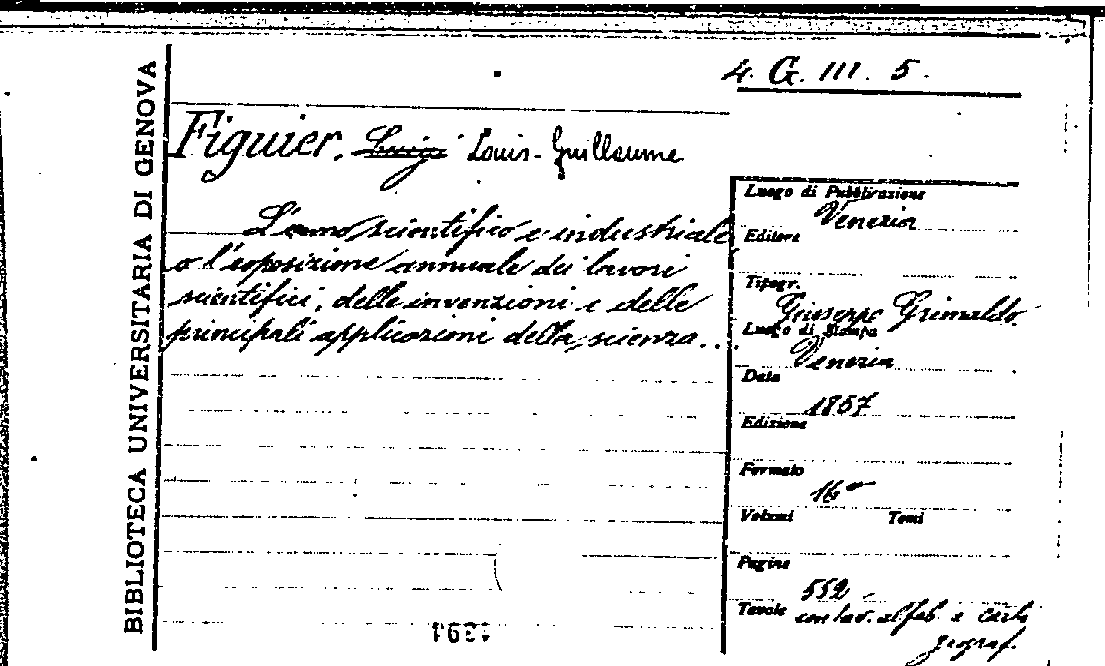 4. G. III. 5.
BIBLIOTECA UNIVERSITARIA DI GENOVA
Figuier, Luigi Louis-Guillaume
L'anno scientifico e industriale
o l'esposizione annuale dei lavori
scientifici, delle invenzioni e delle
principali applicazioni della scienza...
Luogo di Pubblicazione
Venezia
Editore
Tipogr.
Giuseppe Grimaldo
Luogo di Stampa
Venezia
Data
1857
Edizione
Formato
16°
Volumi Tomi
Pagine
552
Tavole con tav. alfab. e carta
geograf.
1394